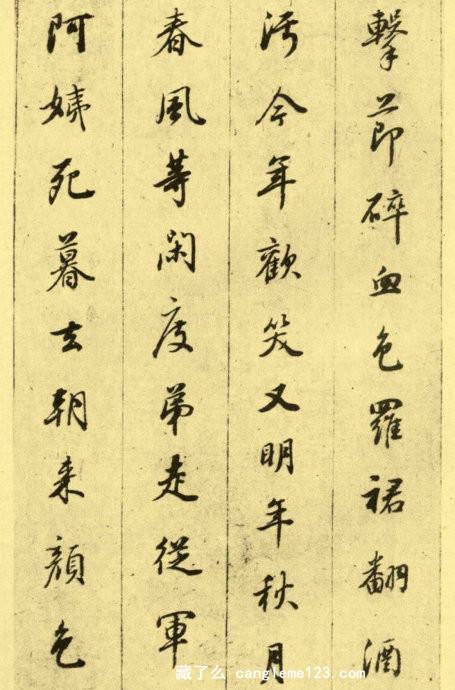 擊節碎血色羅裙翻酒
汚今年歡笑又明年秋月
春風等閑度弟走從軍
阿姨死暮去朝来顔色
藏了么 cangleme123.com